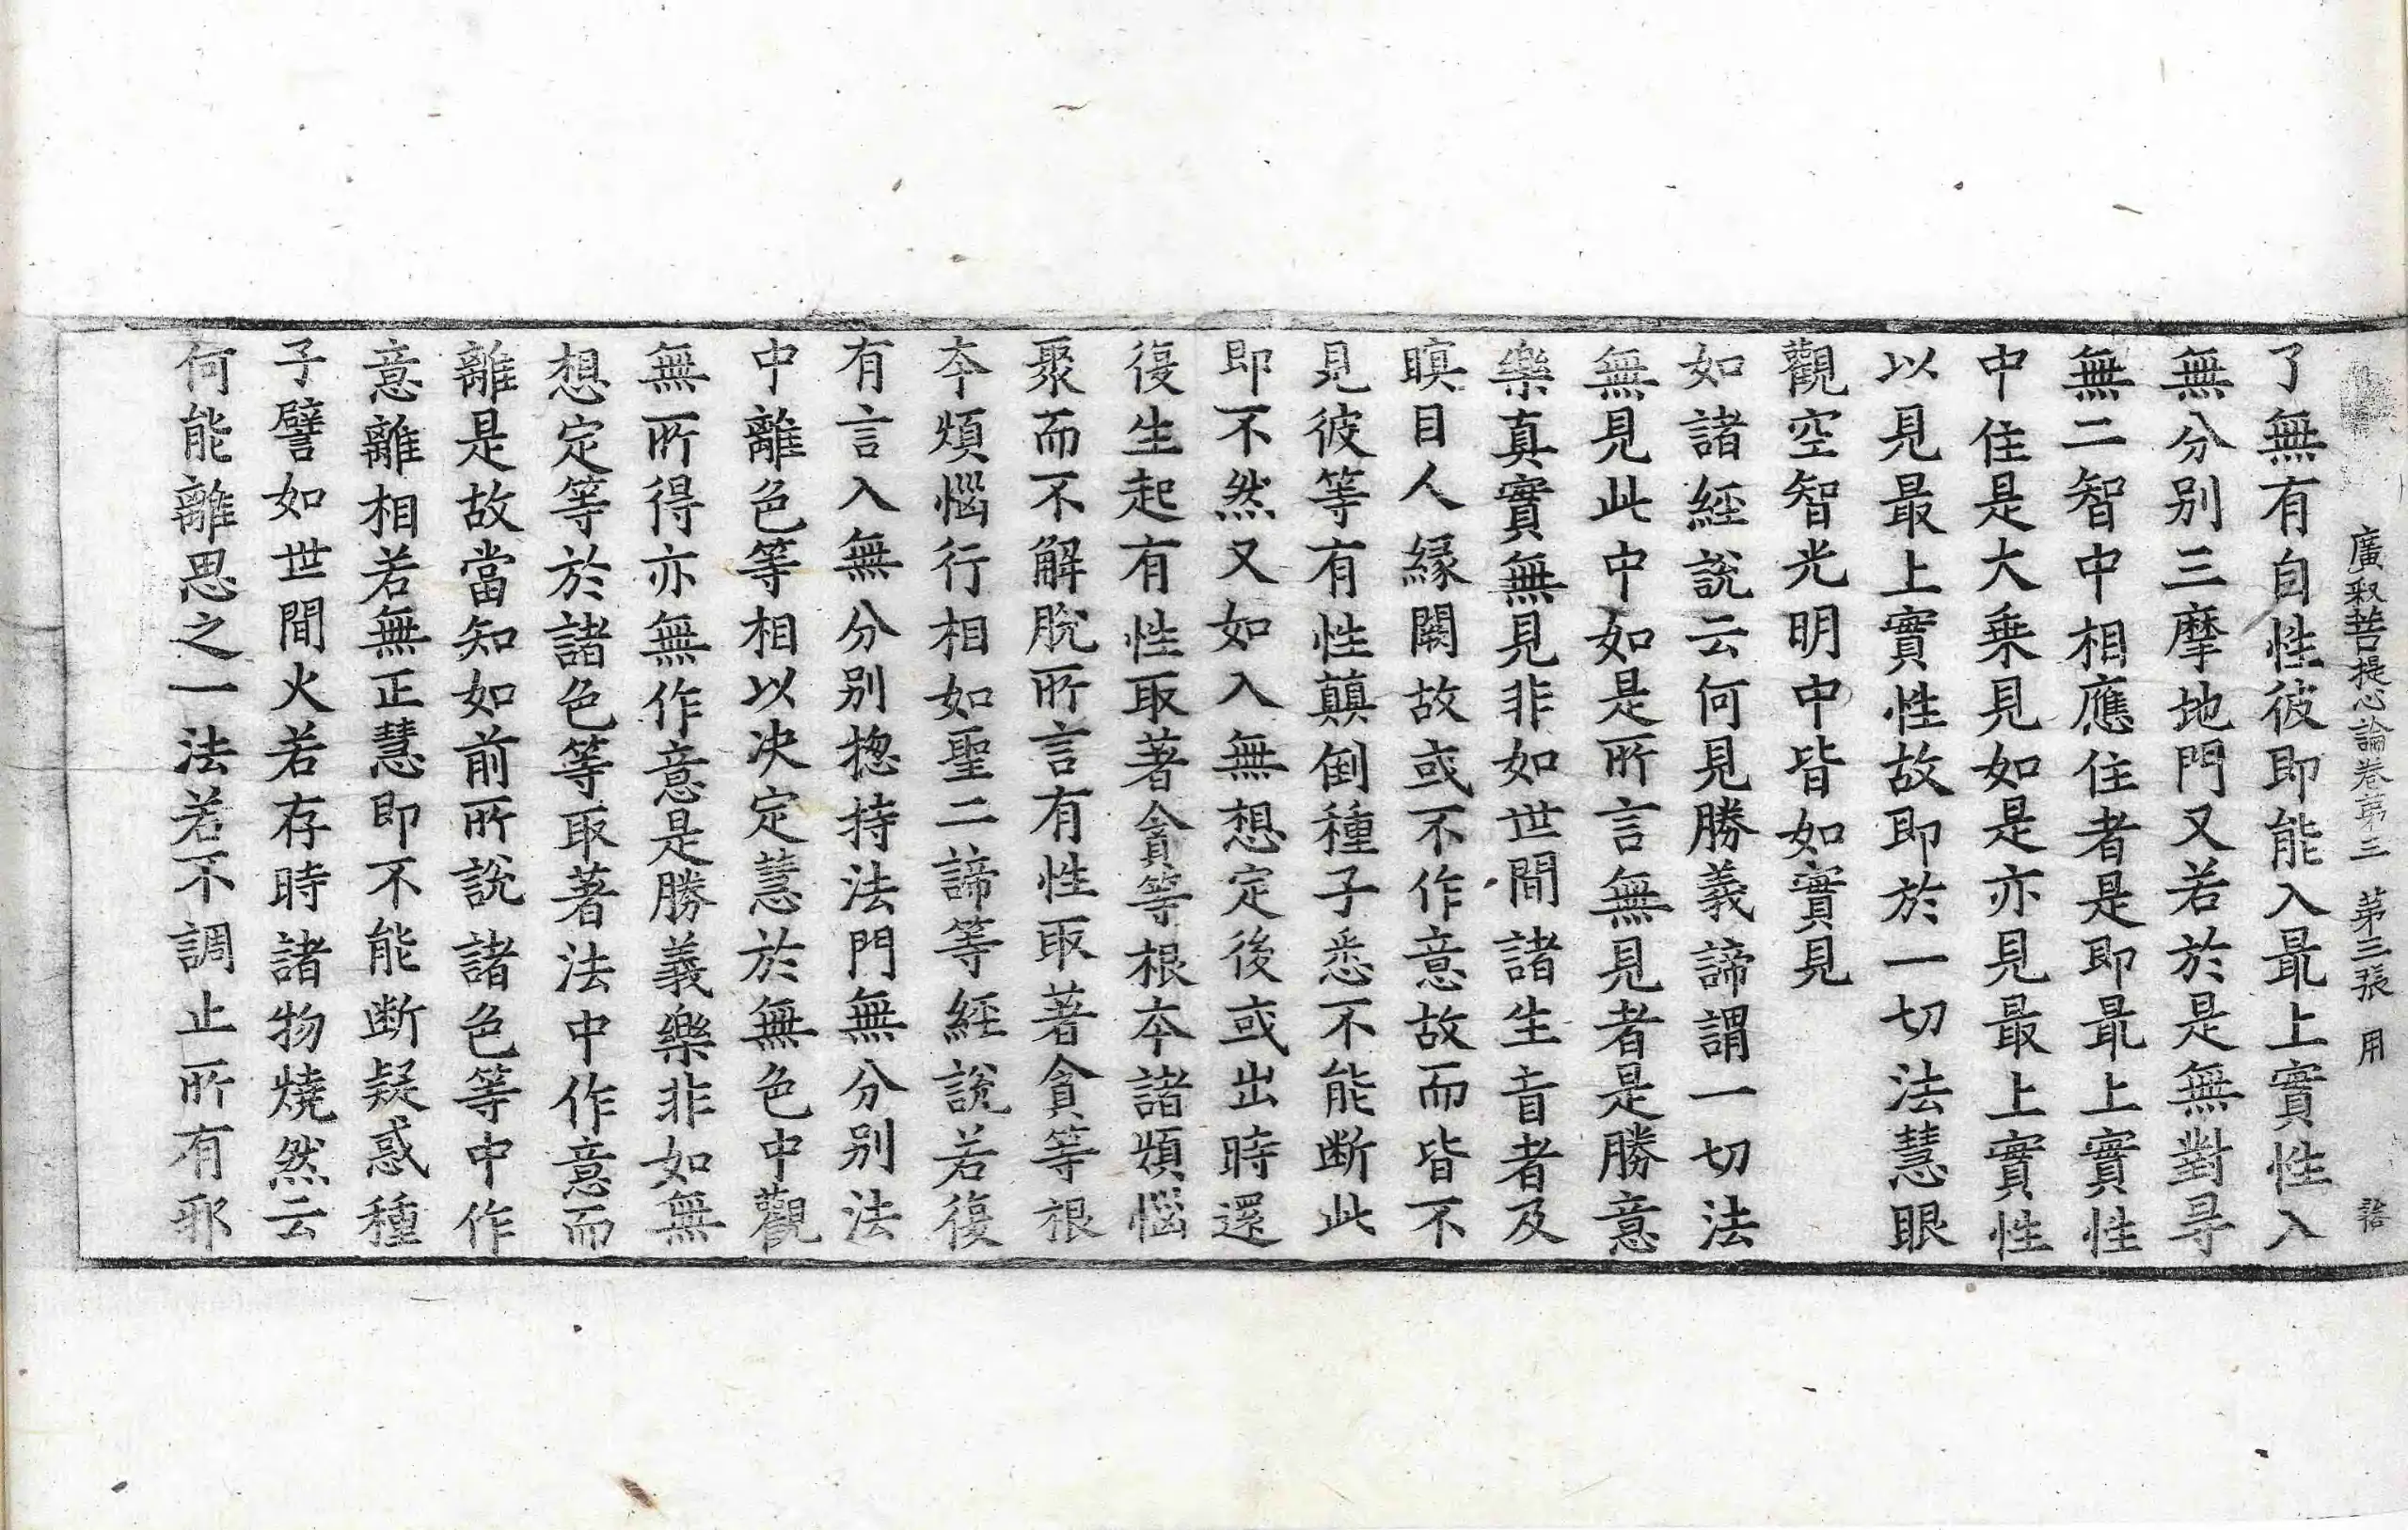 廣釈菩提心論卷第三 第三張 用
了無有自性彼即能入最上實性入
無分别三摩地門又若於是無對尋
無二智中相應住者是即最上實性
中住是大乗見如是亦見最上實性
以見最上實性故即於一切法慧眼
觀空智光明中皆如實見
如諸經說云何見勝義諦謂一切法
無見此中如是所言無見者是勝意
樂真實無見非如世間諸生盲者及
瞑目人緣闕故或不作意故而皆不
見彼等有性顛倒種子悉不能断此
即不然又如入無想定後或出時還
復生起有性取著貪等根夲諸煩惱
聚而不解脫所言有性取著貪等根
夲煩惱行相如聖二諦等經說若復
有言入無分别揔持法門無分别法
中離色等相以决定慧於無色中觀
無所得亦無作意是勝義樂非如無
想定等於諸色等取著法中作意而
離是故當知如前所說諸色等中作
意離相若無正慧即不能断疑惑種
子譬如世間火若存時諸物燒然云
何能離思之一法若不調止所有邪